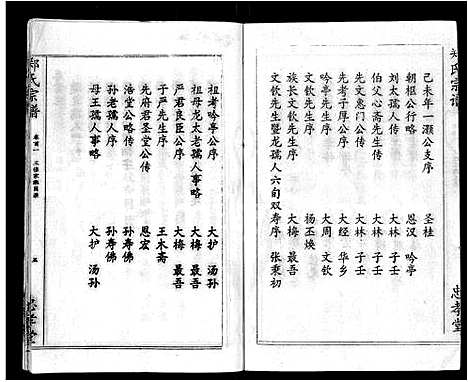 郑氏宗谱
忠孝堂
己未年一灏公支序 圣桂
朝枢公行略 恩汉 吟亭
刘太孺人序 大林 子壬
伯父心斋先生序 大林 子壬
先文惪门公传 大林 子壬
先考子厚公序 大经 华乡
吟亭先生序 大周 文钦
文钦先生序 杨丕焕
族长文钦先生序 大梅 最吾
文钦先生暨龙孺人六旬双寿序 张秉初
祖考吟亭公序 大护 汤孙
祖母龙太老孺人事略 大梅 最吾
严君良臣公序 大梅 最吾
于严先生序 王木斋
先府君圣堂公传 恩宏
浩堂公略传 孙寿佛
孙老孺人序 孙寿佛
母王孺人事略 大护 汤孙
郑氏宗谱
卷首一
五
忠孝堂